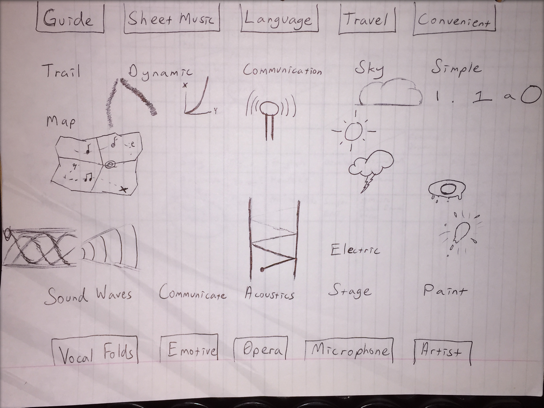 Guide Sheet Music Language Travel Convenient
Trail Dynamic Communication Sky Simple
X
Y
1. 1 a O
Map
Electric
Sound Waves Communicate Acoustics Stage Paint
Vocal Folds Emotive Opera Microphone Artist